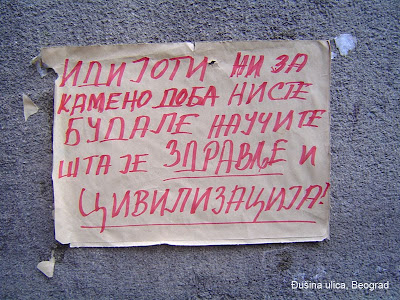 ИДИЈОТИ НИ ЗА
КАМЕНО ДОБА НИСТЕ
БУДАЛЕ НАУЧИТЕ
ШТА ЈЕ ЗДРАВЉЕ И
ЦИВИЛИЗАЦИЈА!
Đušina ulica, Beograd